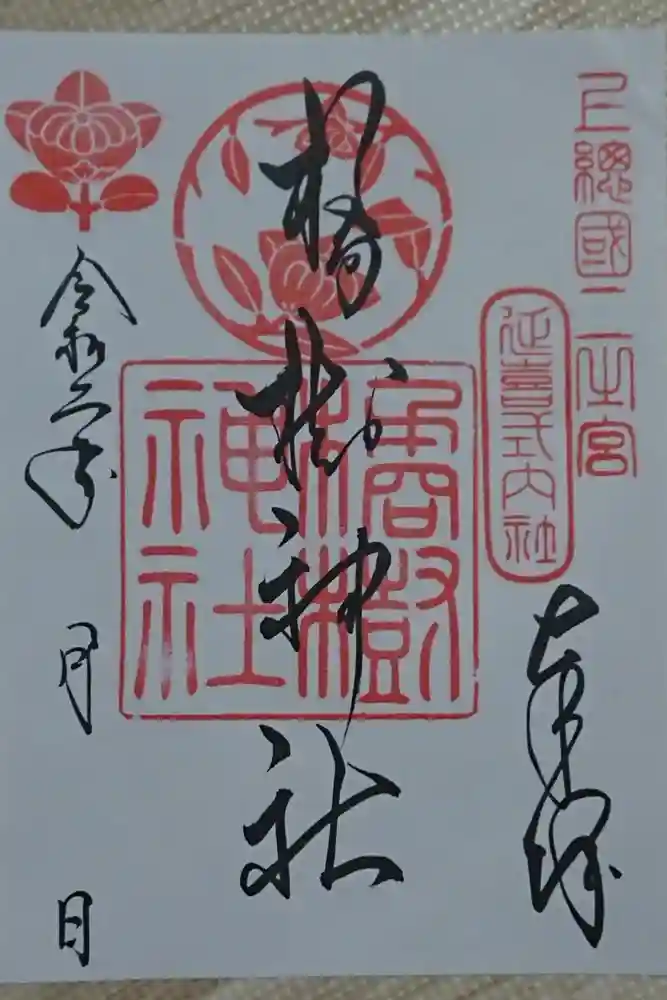 上總國二之宮
延喜式内社
奉拝
橘樹神社
橘樹
神社
令和二年
月
日